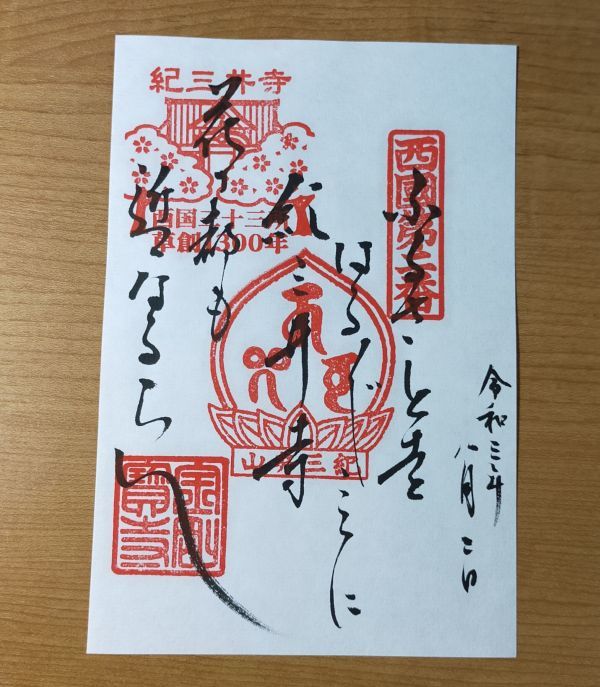 令和三年
八月二日
西國第二番
ふるさとを
はる〴〵こゝに
紀三井寺
花の都も
近くなるらん
紀三井寺
西国三十三所
草創1300年
紀三井山
金剛寶寺